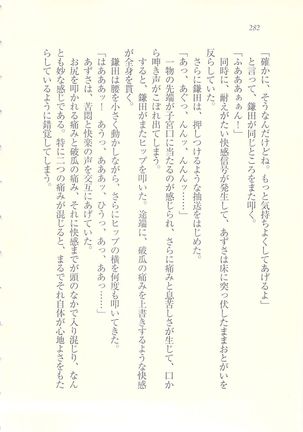 282
「確かに、そうなんだけどね。もっと気持ちよくしてあげるよ」
と言って、鎌田が同じところをまた叩く。
「ふああああぁん！」
同時に、耐えがたい快感信号が発生して、あずさは床に突っ伏したままおとがいを
反らしていた。
さらに鎌田は、押しつけるような抽送をはじめた。
「あっ、あぐっ、んんんっ、んんーっ……」
一物の先端が子宮口に当たるのが感じられ、さらに痛みと息苦しさが生じて、口か
ら呻き声がこぼれ出てしまう。
すると、鎌田がまたヒップを叩いた。途端に、破瓜の痛みを上書きするような快感
が全身を貫く。
「はああぁーっ！　あうっ、ああぁっ、ひうっ、あっ、ああっ……」
鎌田は腰を小さく動かしながら、さらにヒップの横を何度も叩いてきた。
あずさは、苦悶と快楽の声を交互にあげていた。
お尻を叩かれる痛みと破瓜の痛み、それに快感までが頭のなかで入り混じり、なん
とも妙な感じである。特に二つの痛みが混じると、まるでそれ自体が心地よさをもた
らしているように錯覚してしまう。